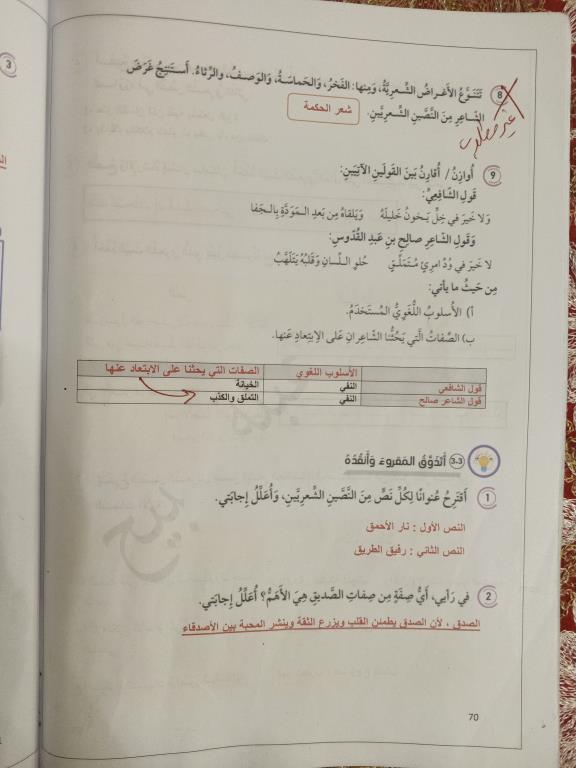 8 تَتَنَوَّعُ الأَغراضُ الشِّعرِيَّةُ، وَمِنها: الفَخرُ، وَالحَماسَةُ، وَالوَصفُ، والرِّثاءُ. أَستَنتِجُ غَرَضَ
الشّاعِرِ مِنَ النَّصَّينِ الشِّعرِيَّينِ. شعر الحكمة
غير مطلوب
9 أُوازِنُ / أُقارِنُ بَينَ القَولَينِ الآتِيَينِ:
قَولِ الشّافِعِيِّ:
وَلا خَيرَ في خِلٍّ يَخونُ خَليلَهُ وَيَلقاهُ مِن بَعدِ المَوَدَّةِ بِالجَفا
وَقَولِ الشّاعِرِ صالِحِ بنِ عَبدِ القُدّوسِ:
لا خَيرَ في وُدِّ امرِئٍ مُتَمَلِّقٍ حُلوِ اللِّسانِ وَقَلبُهُ يَتَلَهَّبُ
مِن حَيثُ ما يَأتي:
أ) الأُسلوبُ اللُّغَوِيُّ المُستَخدَمُ.
ب) الصِّفاتُ الَّتي يَحُثُّنا الشّاعِرانِ عَلى الاِبتِعادِ عَنها.
الأسلوب اللغوي الصفات التي يحثنا على الابتعاد عنها
قول الشافعي النفي الخيانة
قول الشاعر صالح النفي التملق والكذب
3-3 أَتَذَوَّقُ المَقروءَ وَأَنقُدُهُ
1 أَقتَرِحُ عُنوانًا لِكُلِّ نَصٍّ مِنَ النَّصَّينِ الشِّعرِيَّينِ، وَأُعَلِّلُ إِجابَتي.
النص الأول : نار الأحمق
النص الثاني : رفيق الطريق
2 في رَأيي، أَيُّ صِفَةٍ مِن صِفاتِ الصَّديقِ هِيَ الأَهَمُّ؟ أُعَلِّلُ إِجابَتي.
الصدق ، لأن الصدق يطمئن القلب ويزرع الثقة وينشر المحبة بين الأصدقاء
70
3